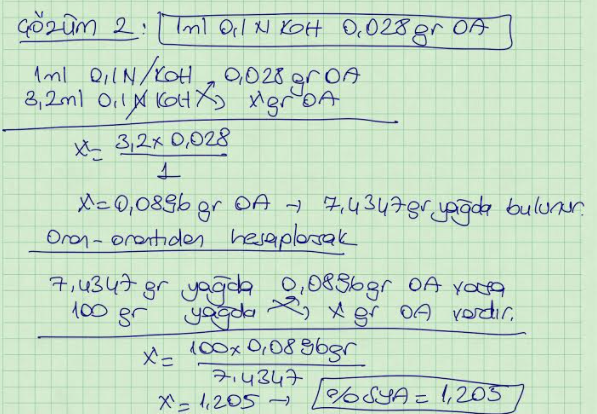 ÇÖZÜM 2: 1ml 0,1N KOH 0,028gr OA
1ml 0,1N KOH 0,028gr OA
3,2ml 0,1N KOH x gr OA
x= 3,2x0,028
1
x=0,0896 gr OA → 7,4347gr yağda bulunur.
Oran-orantıdan hesaplarsak
7,4347 gr yağda 0,0896gr OA varsa
100 gr yağda x gr OA vardır.
x= 100x0,0896gr
7,4347
x= 1,205 → %SYA = 1,205